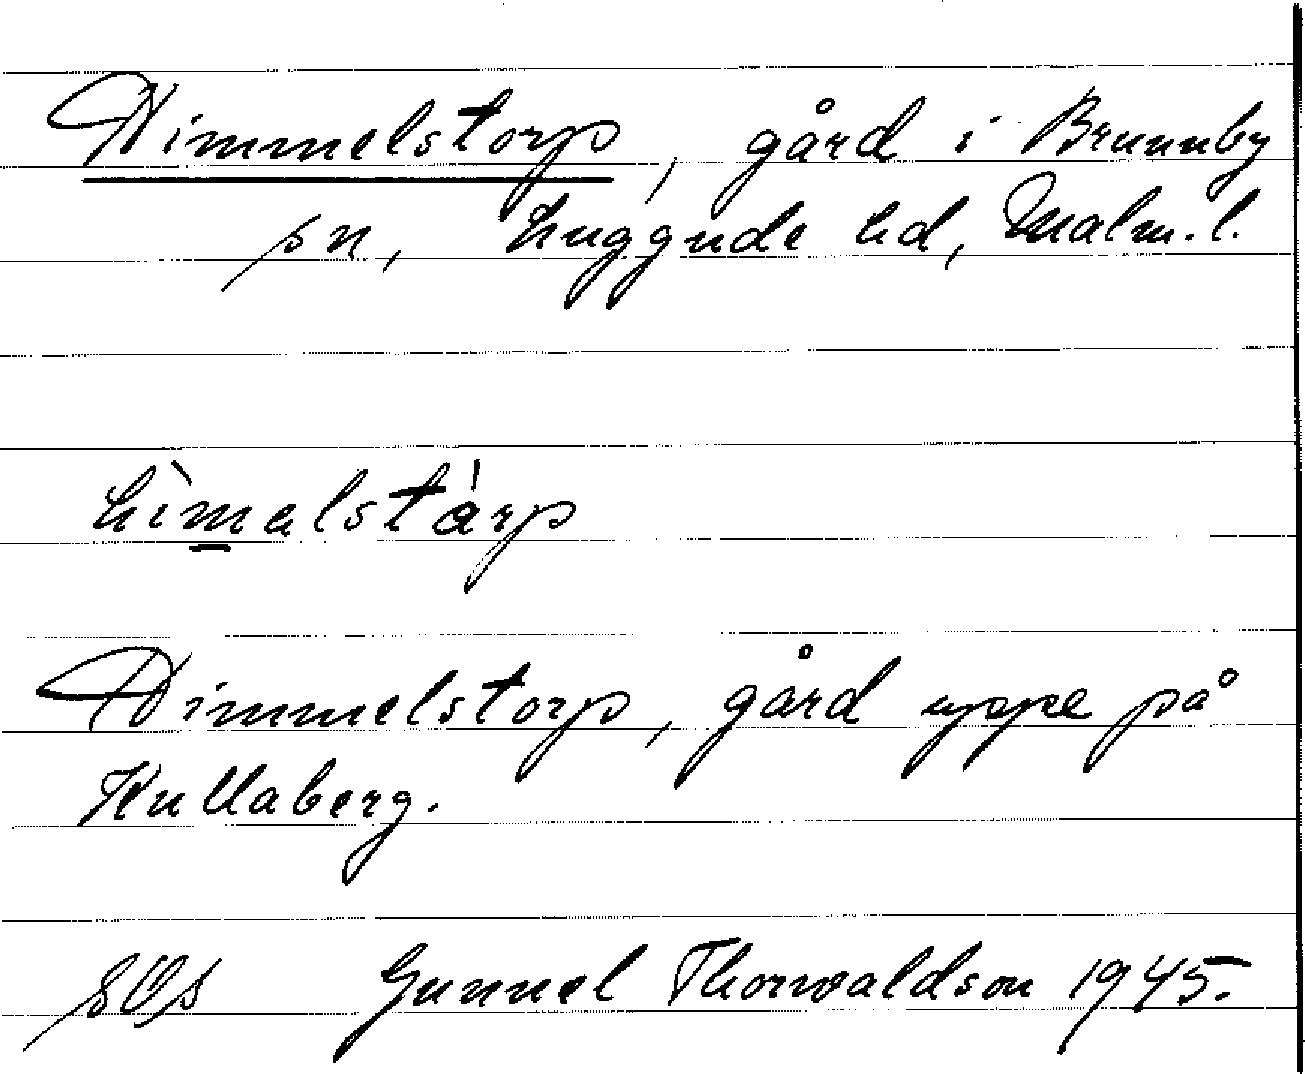 Himmelstorp, gård i Brunnby
sn, Luggude hd, Malm. l.
hìmalstárp
Himmelstorp, gård uppe på
Kullaberg.
Gunnel Thorwaldson 1945.